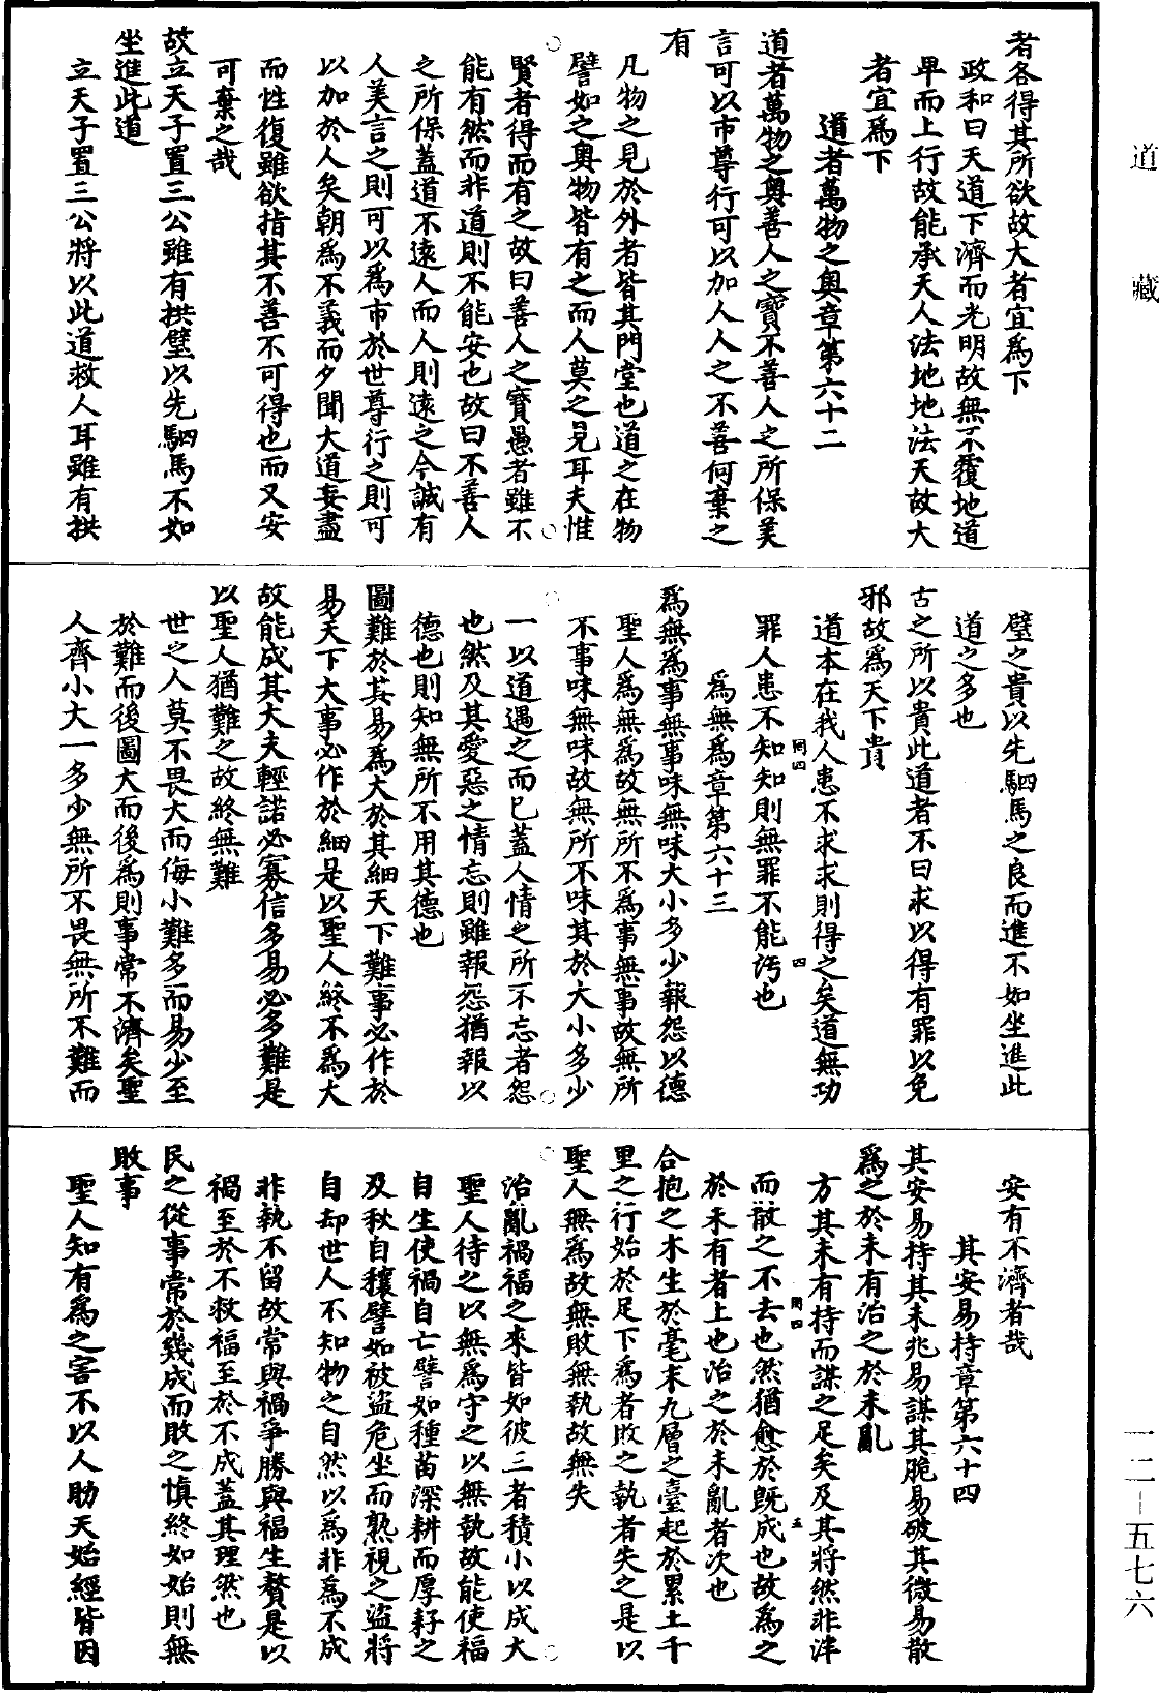 道藏
者各得其所欲故大者宜爲下
政和曰天道下濟而光明故無不覆地道
卑而上行故能承天人法地地法天故大
者宜爲下
道者萬物之奧章第六十二
道者萬物之奧善人之寶不善人之所保美
言可以市尊行可以加人人之不善何棄之
有
凡物之見於外者皆其門堂也道之在物
譬如之奧物皆有之而人莫之見耳夫惟
賢者得而有之故曰善人之寶愚者雖不
能有然而非道則不能安也故曰不善人
之所保蓋道不遠人而人則遠之今誠有
人美言之則可以爲市於世尊行之則可
以加於人矣朝爲不義而夕聞大道妄盡
而性復雖欲指其不善不可得也而又安
可棄之哉
故立天子置三公雖有拱璧以先駟馬不如
坐進此道
立天子置三公將以此道救人耳雖有拱
璧之貴以先駟馬之良而進不如坐進此
道之多也
古之所以貴此道者不曰求以得有罪以免
邪故爲天下貴
道本在我人患不求求則得之矣道無功
罪人患不知知則無罪不能污也
同四
四
爲無爲章第六十三
爲無爲事無事味無味大小多少報怨以德
聖人爲無爲故無所不爲事無事故無所
不事味無味故無所不味其於大小多少
一以道遇之而已蓋人情之所不忘者怨
也然及其愛惡之情忘則雖報怨猶報以
德也則知無所不用其德也
圖難於其易爲大於其細天下難事必作於
易天下大事必作於細是以聖人終不爲大
故能成其大夫輕諾必寡信多易必多難是
以聖人猶難之故終無難
世之人莫不畏大而侮小難多而易少至
於難而後圖大而後爲則事常不濟矣聖
人齊小大一多少無所不畏無所不難而
安有不濟者哉
其安易持章第六十四
其安易持其未兆易謀其脆易破其微易散
爲之於未有治之於未亂
方其未有持而謀之足矣及其將然非泮
而散之不去也然猶愈於既成也故爲之
同四
五
於未有者上也治之於未亂者次也
合抱之木生於毫末九層之臺起於累土千
里之行始於足下爲者敗之執者失之是以
聖人無爲故無敗無執故無失
治亂禍福之來皆如彼三者積小以成大
聖人待之以無爲守之以無執故能使福
自生使禍自亡譬如種苗深耕而厚耔之
及秋自穰譬如被盜危坐而熟視之盜將
自却世人不知物之自然以爲非爲不成
非執不留故常與禍爭勝與福生贅是以
禍至於不救福至於不成蓋其理然也
民之從事常於幾成而敗之慎終如始則無
敗事
聖人知有爲之害不以人助天始經皆因
一二—五七六